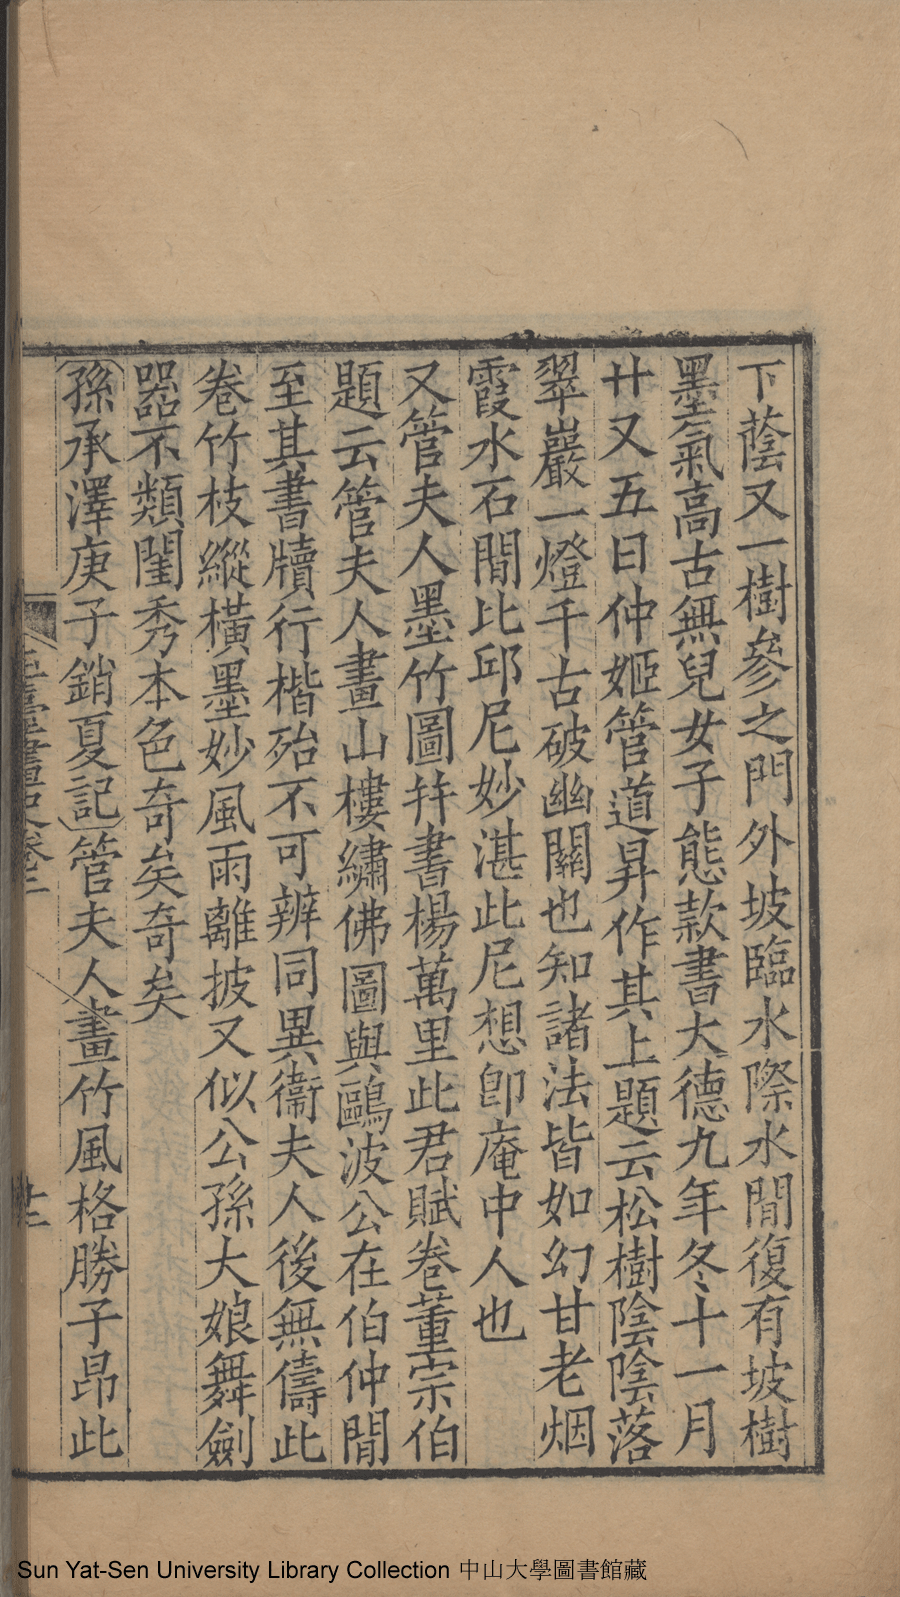 下蔭又一樹參之門外坡臨水際水間復有坡樹
墨氣高古無兒女子態款書大德九年冬十一月
廿又五日仲姬管道昇作其上題云松樹陰陰落
翠巖一燈千古破幽關也知諸法皆如幻甘老烟
霞水石間比邱尼妙湛此尼想卽庵中人也
又管夫人墨竹圖幷書楊萬里此君賦卷董宗伯
題云管夫人畫山樓繡佛圖與鷗波公在伯仲間
至其書牘行楷殆不可辨同異衞夫人後無儔此
卷竹枝縱橫墨妙風雨離披又似公孫大娘舞劍
器不類閨秀本色奇矣奇矣
(孫承澤庚子銷夏記)管夫人畫竹風格勝子昂此
玉臺畫史卷二
Sun Yat-Sen University Library Collection 中山大學圖書館藏